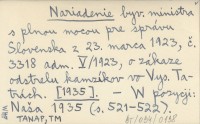 Nariadenie byv. ministra
s plnou mocou pre správu
Slovenska z 23. marca 1923, č.
3318 adm. V/1923, o zákaze
odstrelu kamzíkov vo Vys. Ta-
trách. [1935]. - W pozycji:
Naša 1935 (s. 521-522).
TANAP, TM